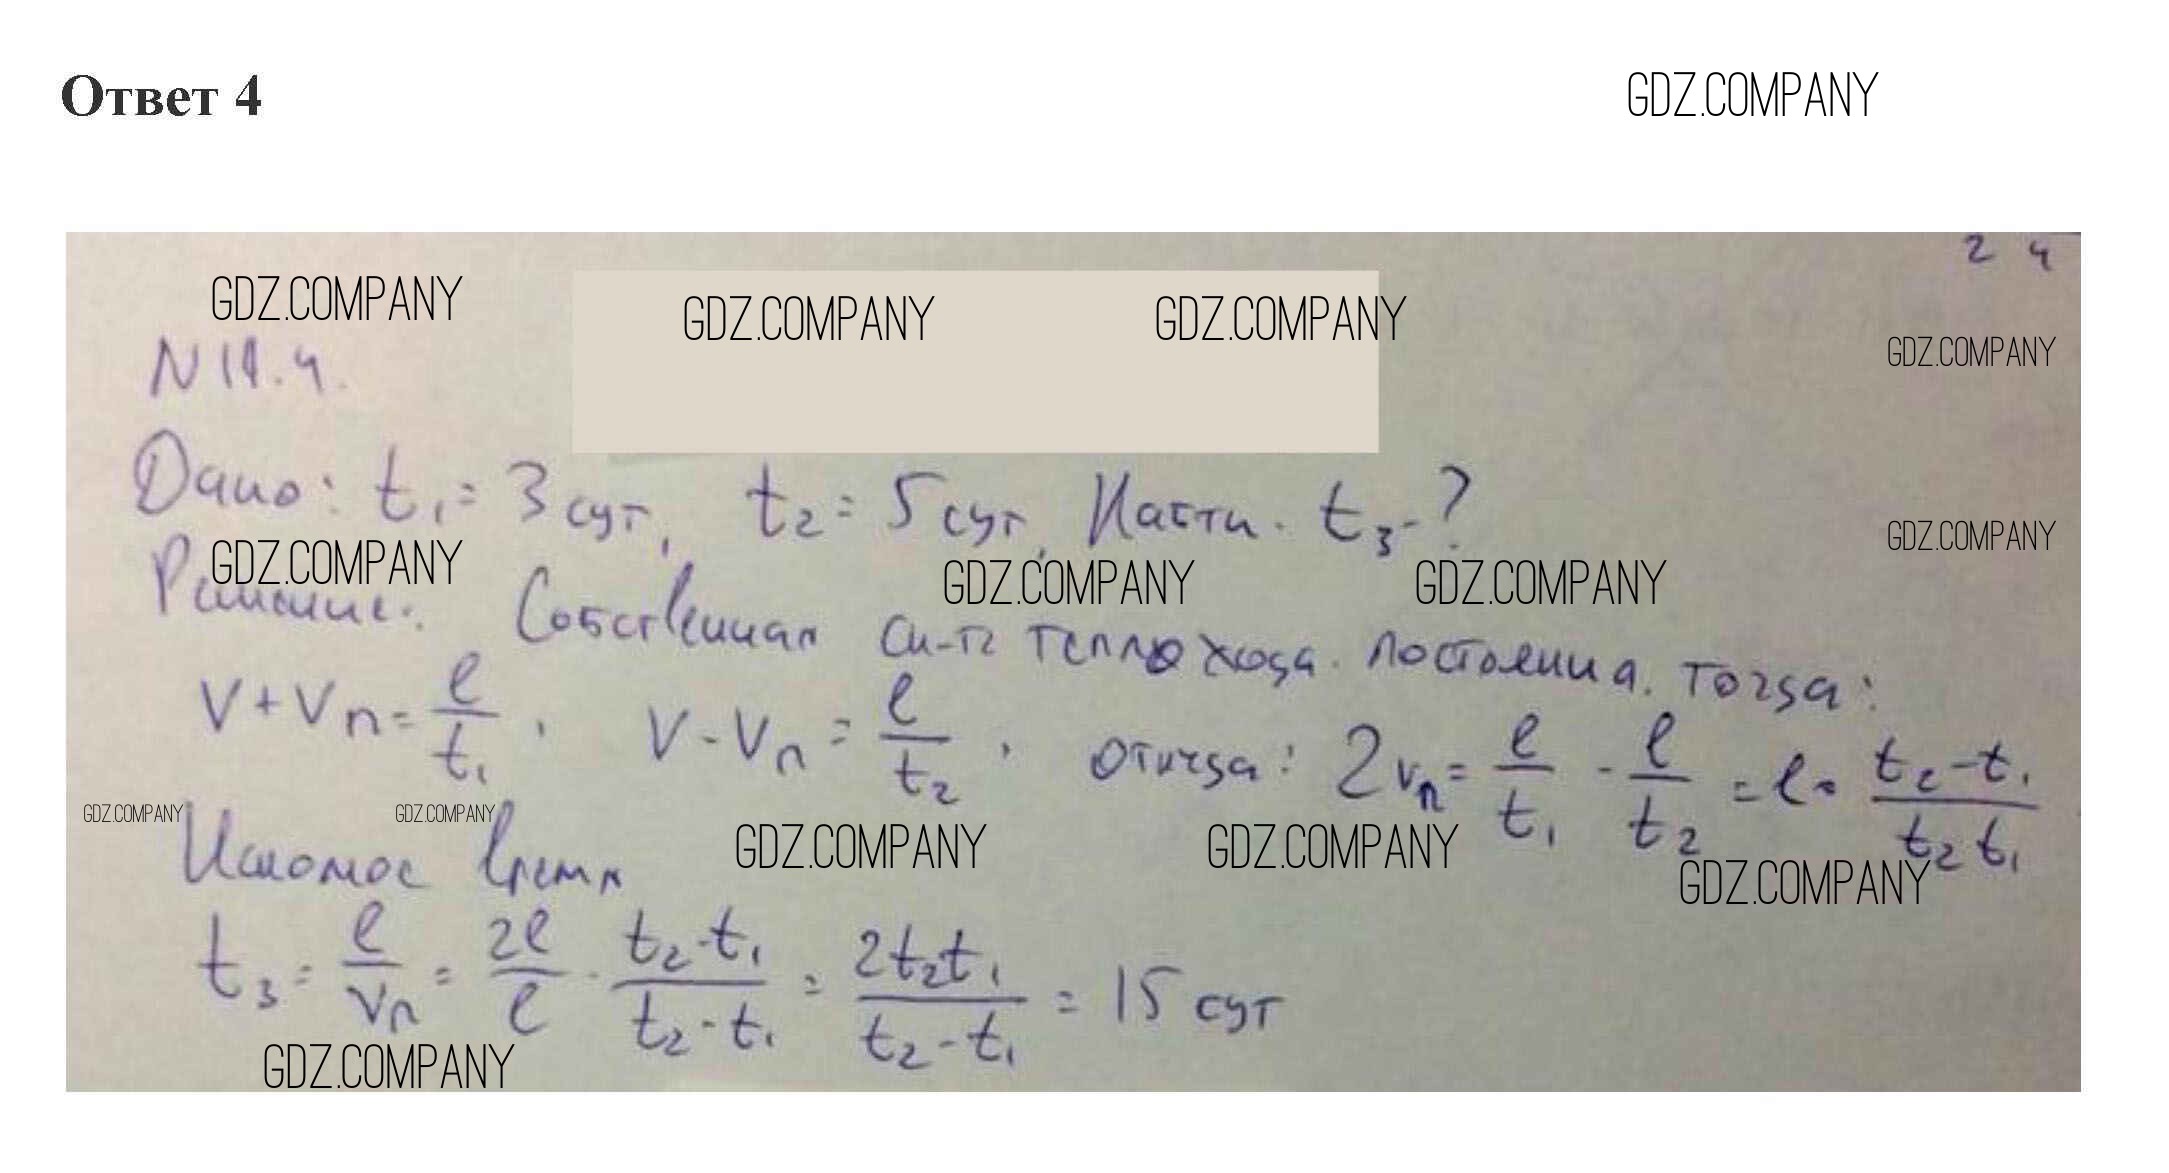 Ответ 4
GDZ.COMPANY
2 4
GDZ.COMPANY GDZ.COMPANY GDZ.COMPANY
GDZ.COMPANY
N 18.4.
Дано: t₁ = 3 сут, t₂ = 5 сут. Найти. t₃ - ?
GDZ.COMPANY
GDZ.COMPANY GDZ.COMPANY GDZ.COMPANY
Решение: Собственная ск-ть теплохода. постоянна. тогда:
V + Vп = l/t₁, V - Vп = l/t₂, откуда: 2vп = l/t₁ - l/t₂ = l · (t₂ - t₁)/(t₂t₁)
GDZ.COMPANY GDZ.COMPANY GDZ.COMPANY GDZ.COMPANY
GDZ.COMPANY
Искомое время
t₃ = l/vп = 2l/l · (t₂ - t₁)/(t₂ - t₁) = 2t₂t₁/(t₂ - t₁) = 15 сут
GDZ.COMPANY